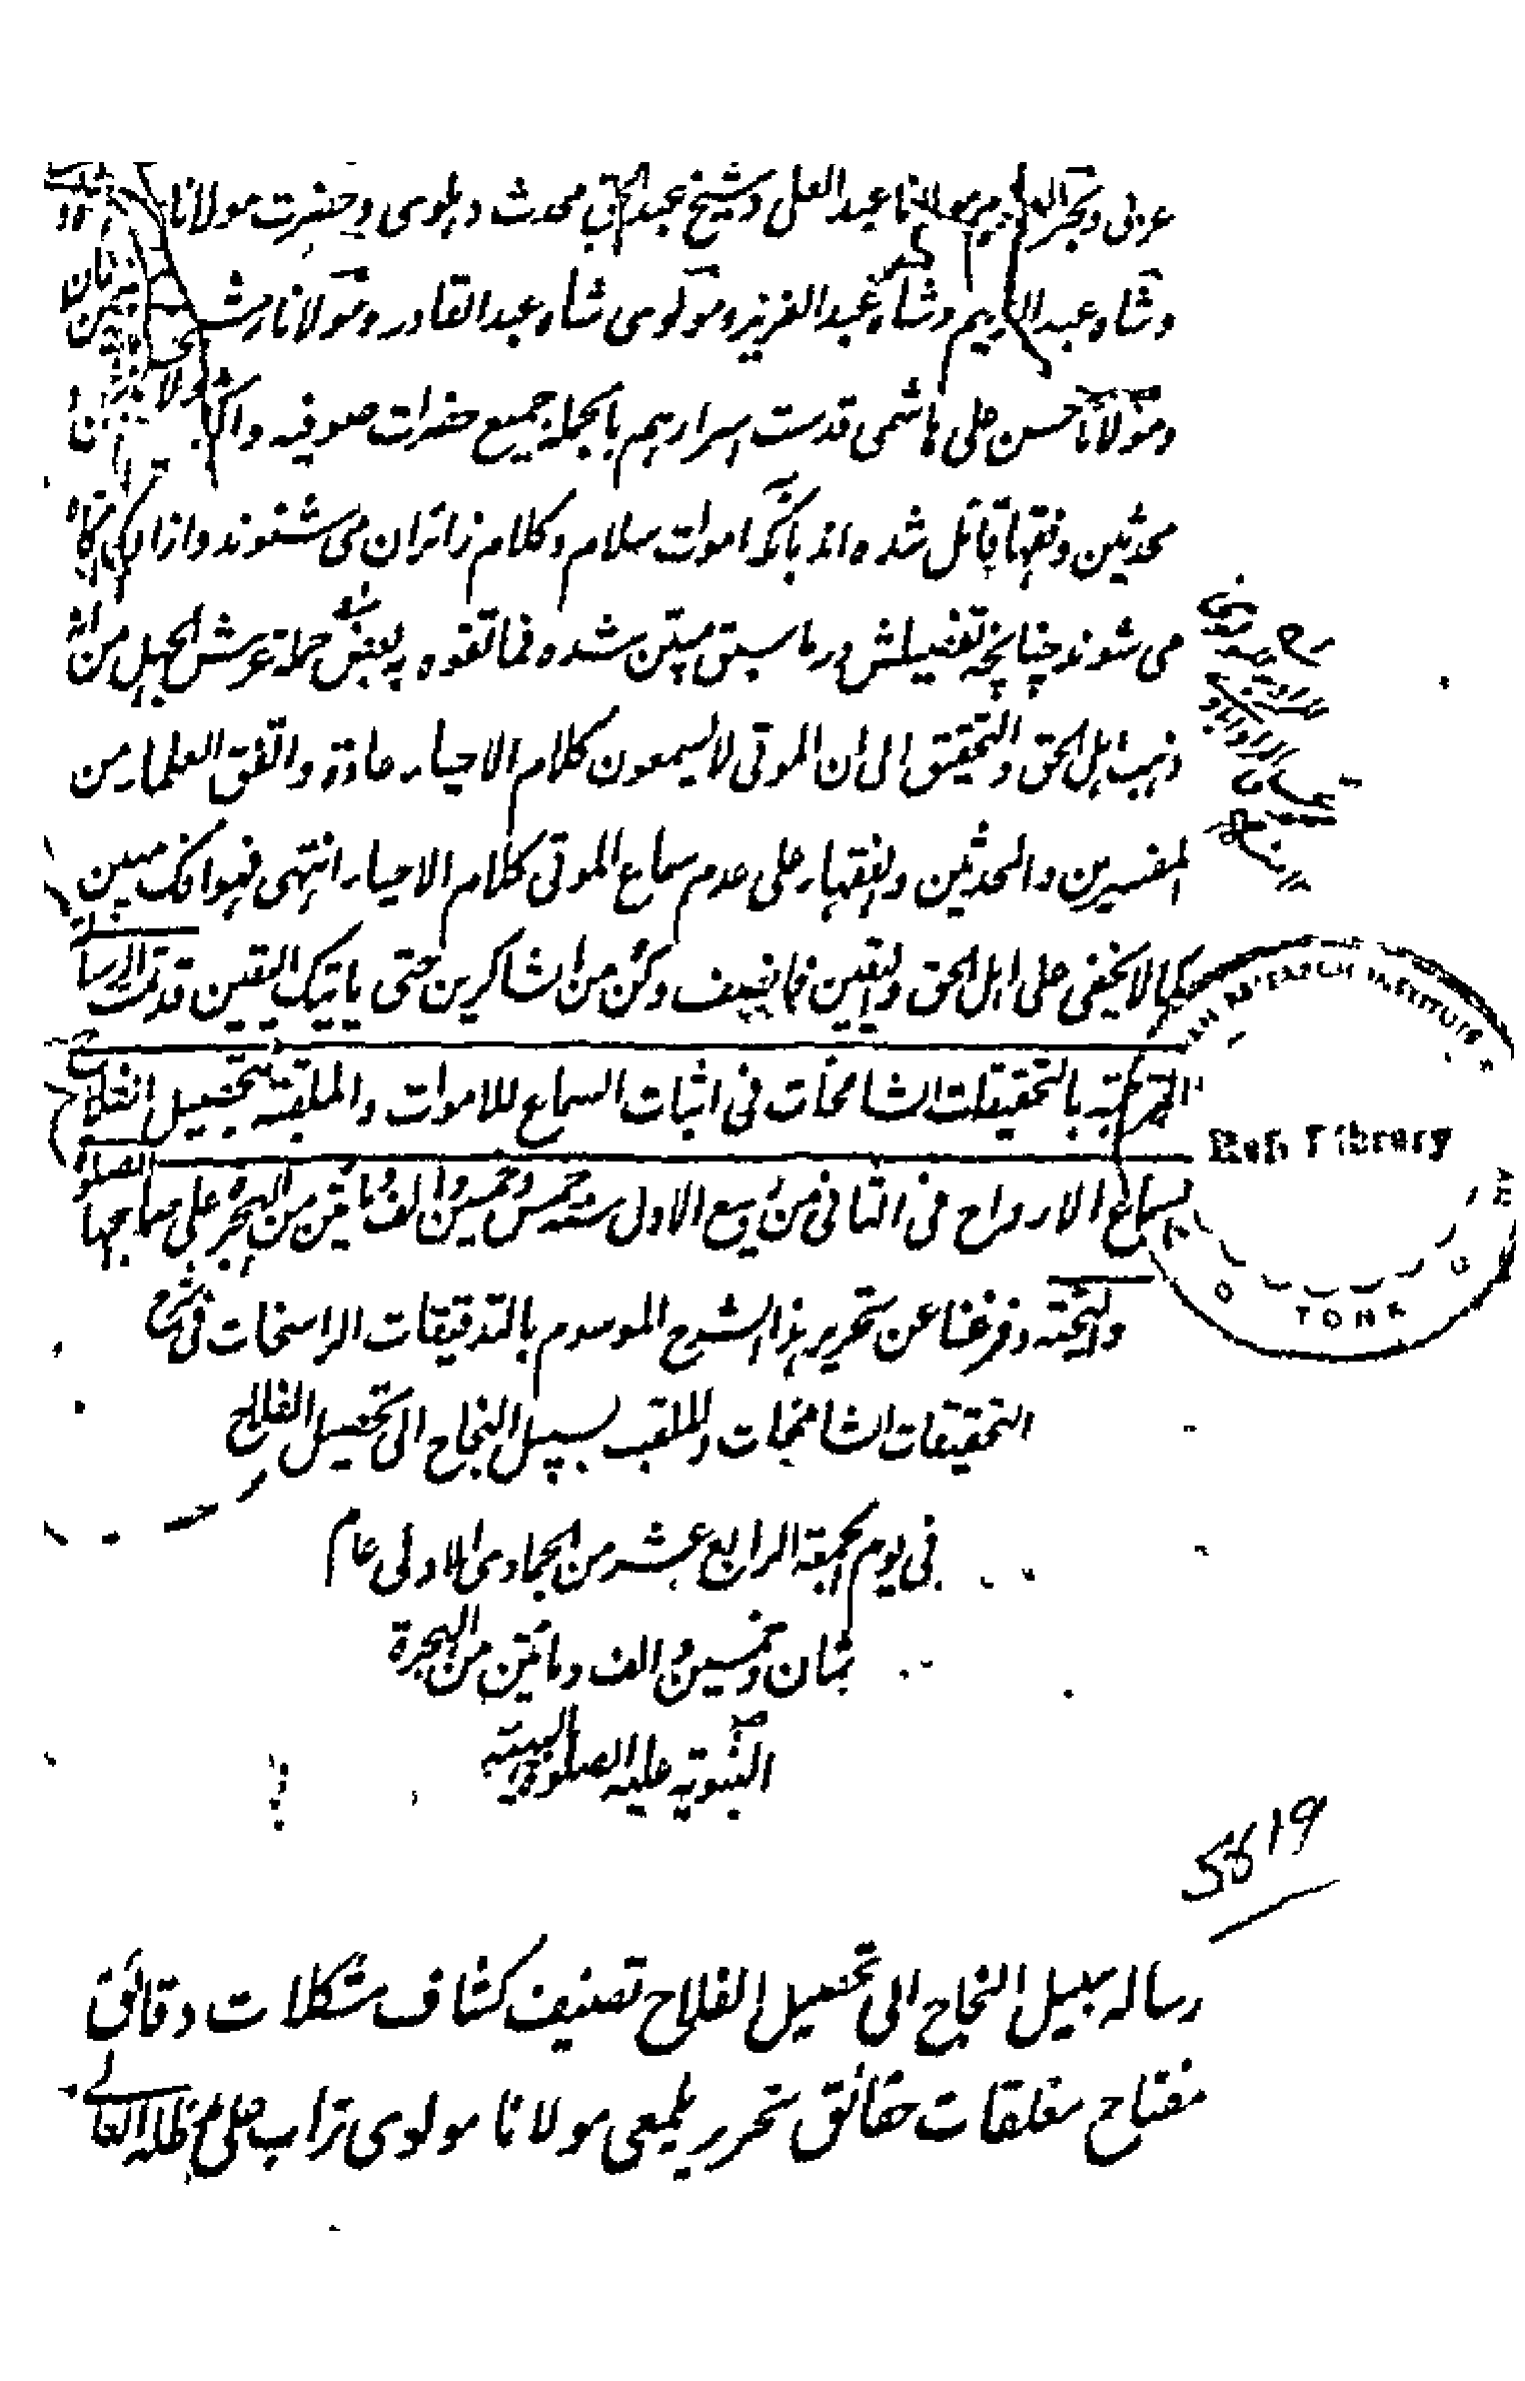 عربی وبحر العلوم مولانا عبد العلی وشیخ عبد الحق محدث دہلوی وحضرت مولانا
وشاہ عبد الرحیم وشاہ عبد العزیز ومولوی شاہ عبد القادر ومولانا
ومولانا حسن علی ہاشمی قدست اسرارہم بالجملہ جمیع حضرات صوفیہ واکثر
محدثین وفقہا قائل شدہ اند بآنکہ اموات سلام وکلام زائران می شنوند وازان
می شوند چنانچہ تفصیلش در ما سبق مبین شدہ فما تفوہ بہ بعض حملۃ عرش الجہل من انہ
ذہب اہل الحق والتحقیق الی ان الموتی لا یسمعون کلام الاحیاء عادۃ واتفق العلماء من
المفسرین والمحدثین والفقہاء علی عدم سماع الموتی کلام الاحیاء انتہی فہو افک مبین
کما لا یخفی علی اہل الحق والیقین فانصف وکن من الشاکرین حتی یاتیک الیقین قد تمت الرسالۃ
بالتحقیقات الشامخات فی اثبات السماع للاموات والملقبۃ بتحصیل الفلاح
بسماع الارواح فی الثانی من ربیع الاول سنۃ خمس وخمسین والف ومائتین من الہجرۃ علی صاحبہا الصلوۃ
والتحیۃ وفرغنا عن تحریر ہذا الشرح الموسوم بالتدقیقات الراسخات فی شرح
التحقیقات الشامخات والملقب بسبیل النجاح الی تحصیل الفلاح
فی یوم الجمعۃ الرابع عشر من الجمادی الاولی عام
ثمان وخمسین والف ومائتین من الہجرۃ
النبویۃ علیہ الصلوۃ والتحیۃ
Reh Library
TONK
5619
رسالہ سبیل النجاح الی تحصیل الفلاح تصنیف کشاف مشکلات دقائق
مفتاح مغلقات حقائق نحریر یلمعی مولانا مولوی تراب علی مدظلہ العالے